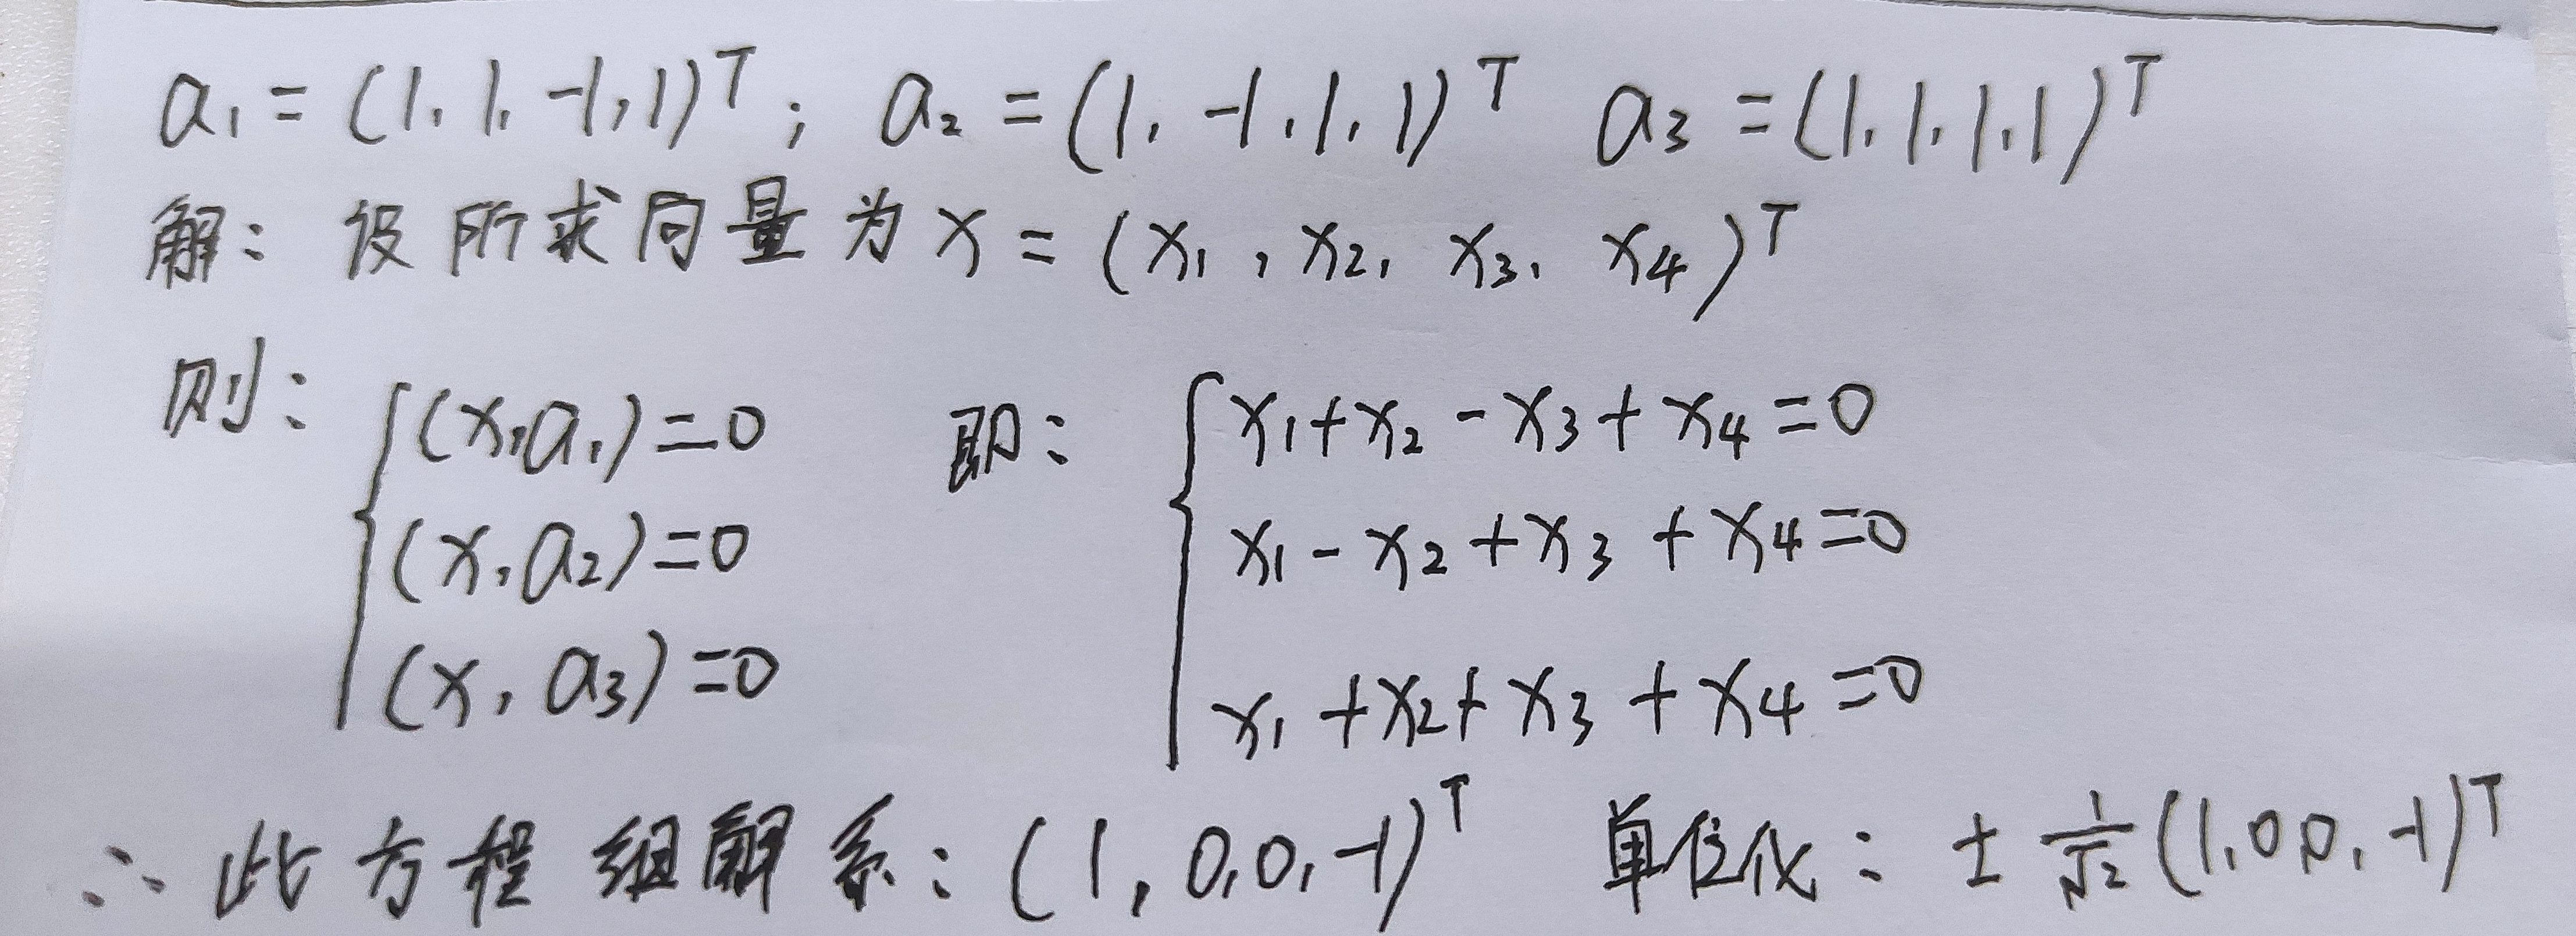 a₁ = (1, 1, -1, 1)ᵀ; a₂ = (1, -1, 1, 1)ᵀ a₃ = (1, 1, 1, 1)ᵀ
解: 设所求向量为 x = (x₁, x₂, x₃, x₄)ᵀ
则: { (x, a₁) = 0 即: { x₁ + x₂ - x₃ + x₄ = 0
(x, a₂) = 0 x₁ - x₂ + x₃ + x₄ = 0
(x, a₃) = 0 x₁ + x₂ + x₃ + x₄ = 0
∴ 此方程组解系: (1, 0, 0, -1)ᵀ 单位化: ± 1/√2 (1, 0 0, -1)ᵀ